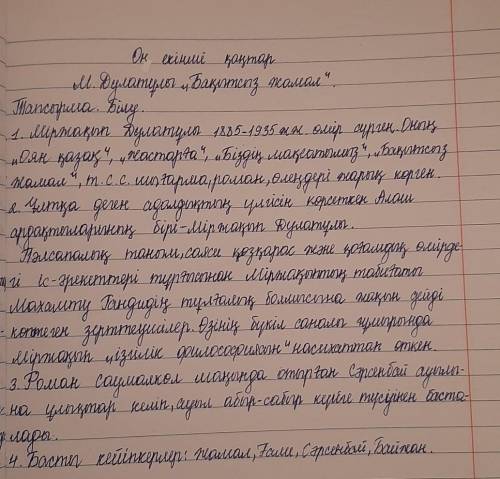 Он екінші қаңтар
М. Дулатұлы „Бақытсыз Жамал".
Тапсырма. Білу.
1. Міржақып Дулатұлы 1885-1935 жж. өмір сүрген. Оның
„Оян қазақ", „Жастарға", „Біздің мақсатымыз", „Бақытсыз
Жамал", т.с.с. шығарма, роман, өлеңдері жарық көрген.
2. Ұлтқа деген адалдықтың үлгісін көрсеткен Алаш
ардақтыларының бірі-Міржақып Дулатұлы.
Пәлсапалық таным, саяси көзқарас және қоғамдық өмірде-
гі іс-әрекеттері тұрғысынан Міржақыптың табиғаты
Махатму Гандидің тұлғалық болмысына жақын дейді
көптеген зерттеушілер. Өзінің бүкіл саналы ғұмырында
Міржақып „ізгілік философиясын" насихаттап өткен.
3. Роман Саумалкөл маңында отырған Сәрсенбай ауылы-
на ұлықтар келіп, ауыл абыр-сабыр күйге түсуінен баста-
лады.
4. Басты кейіпкерлер: Жамал, Ғали, Сәрсенбай, Байжан.